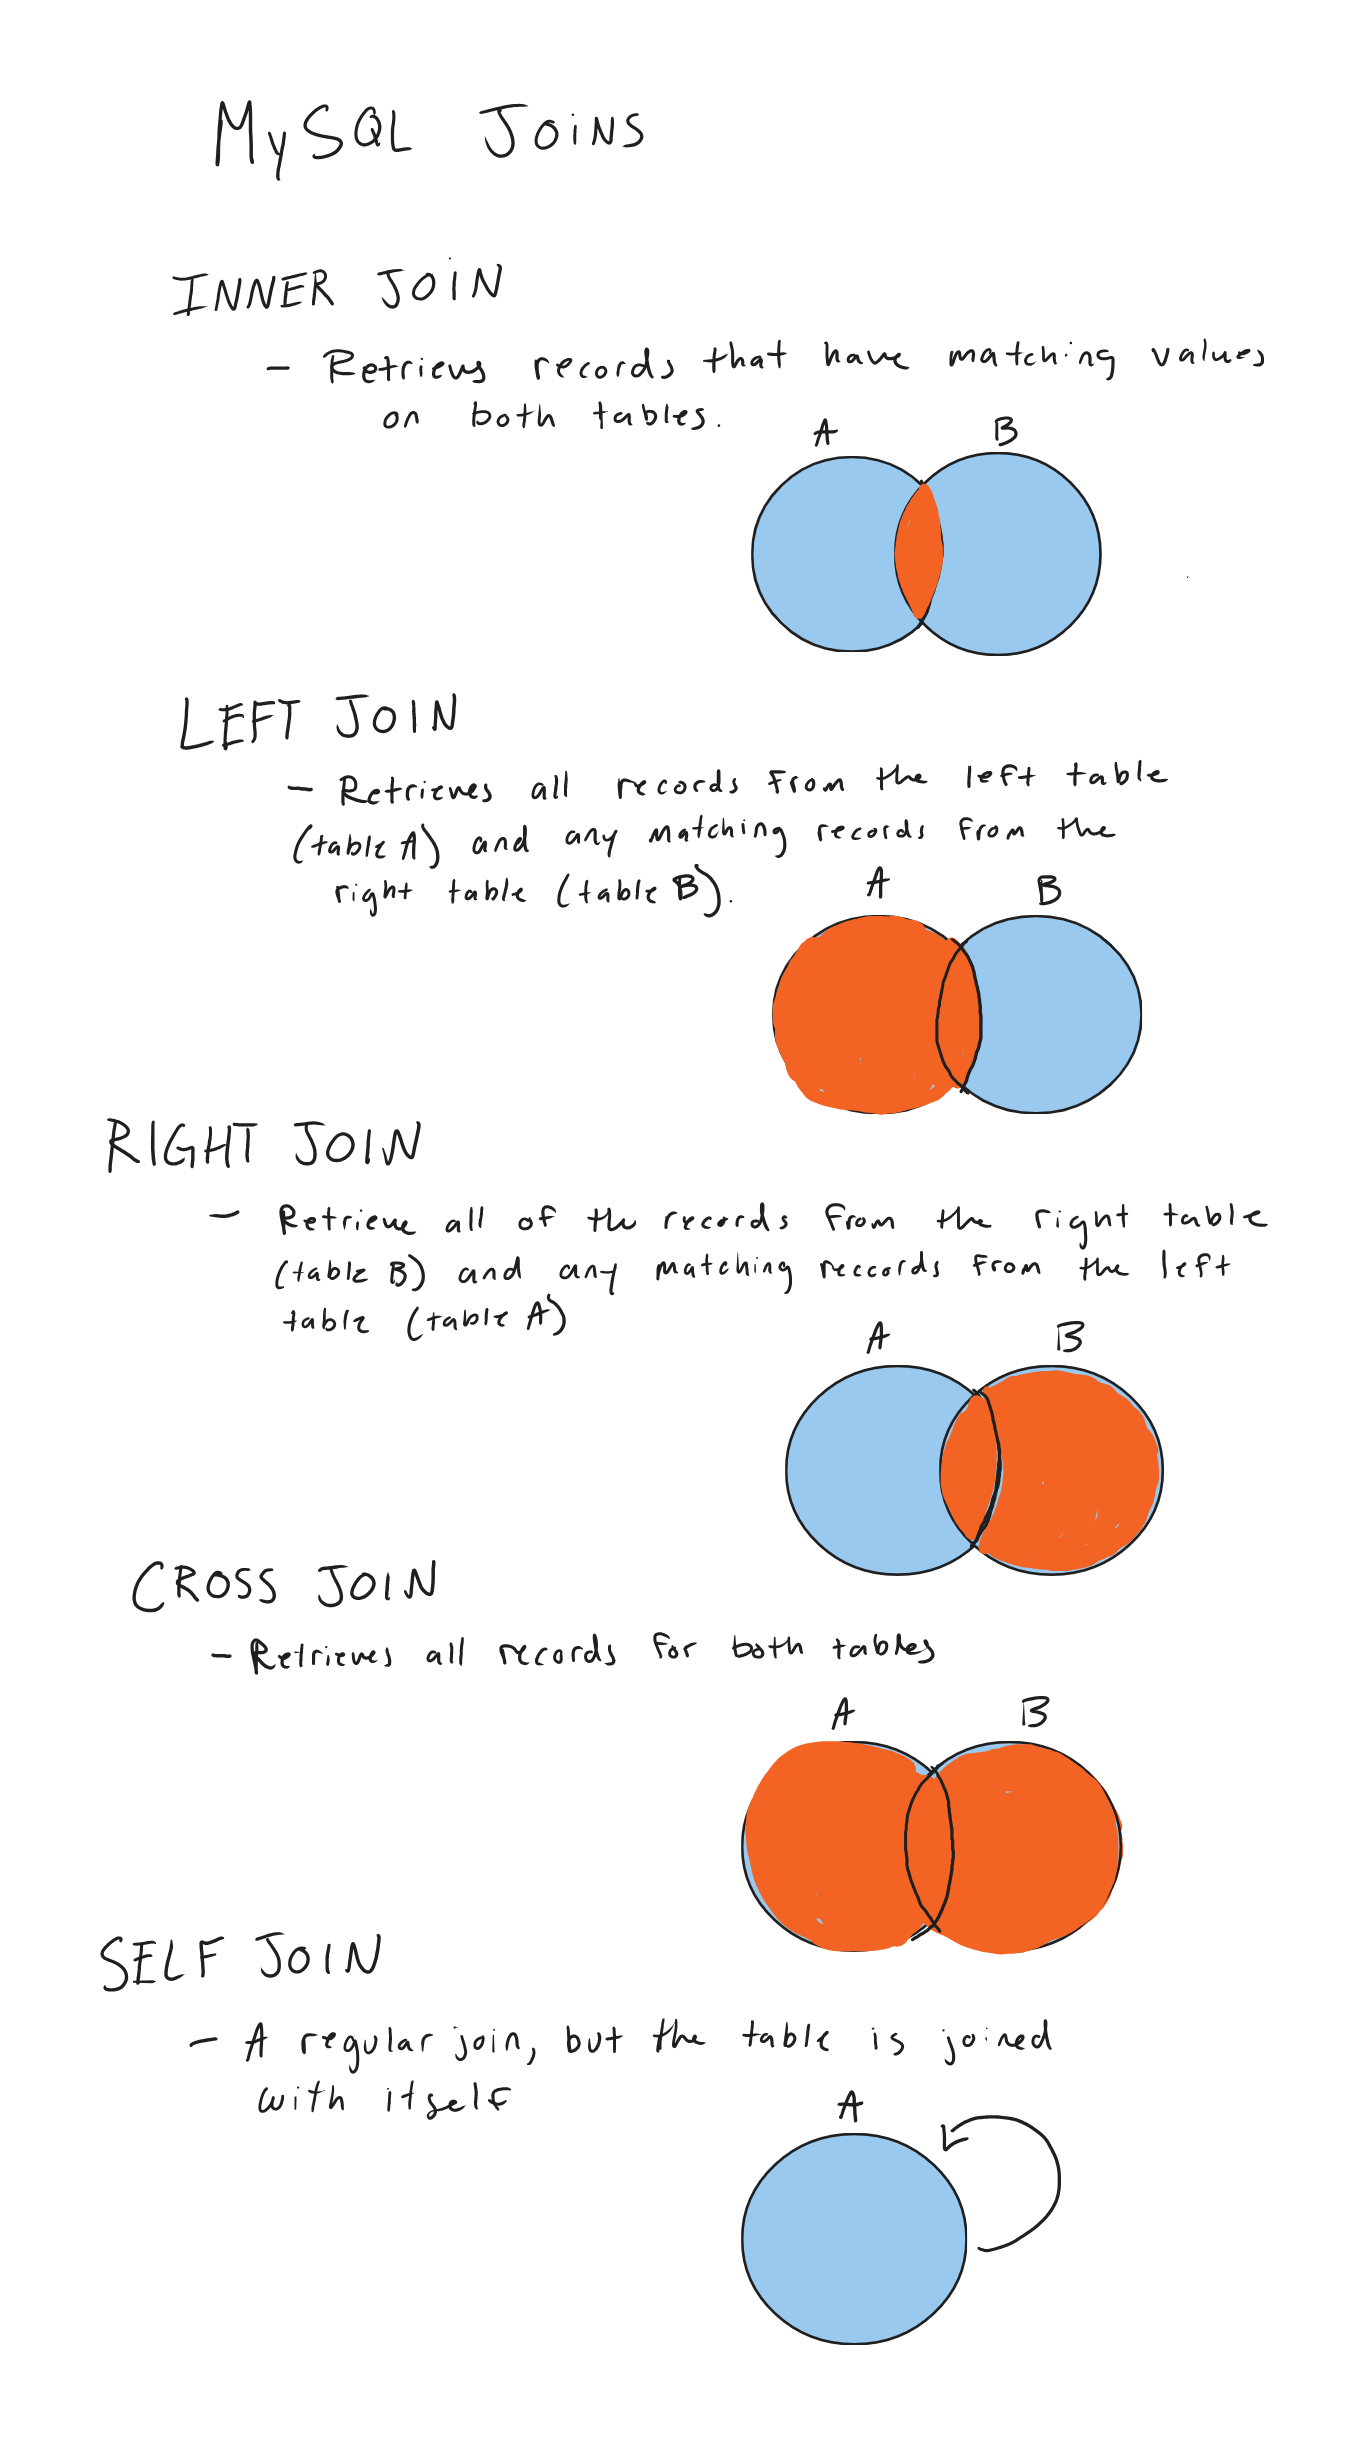 MySQL JOINS
INNER JOIN
- Retrievs records that have matching values
on both tables.
A B
LEFT JOIN
- Retrieves all records from the left table
(table A) and any matching records from the
right table (table B).
A B
RIGHT JOIN
- Retrieve all of the records from the right table
(table B) and any matching reccords from the left
table (table A)
A B
CROSS JOIN
- Retrieves all records for both tables
A B
SELF JOIN
- A regular join, but the table is joined
with itself
A